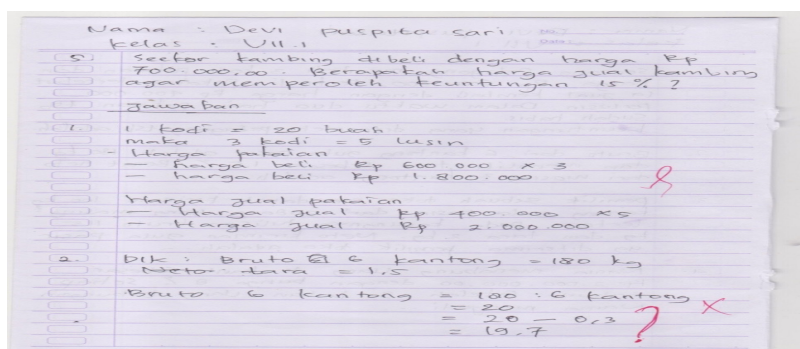 Nama : Devi puspita sari
kelas : VII.1
5. Seekor kambing dibeli dengan harga Rp
700.000,00. Berapakah harga jual kambing
agar memperoleh keuntungan 15 % ?
Jawaban
1. 1 kodi = 20 buah
maka 3 kodi = 5 lusin
- Harga pakaian
- harga beli Rp 600.000 x 3
- harga beli Rp 1.800.000
Harga jual pakaian
- Harga jual Rp 400.000 x 5
- Harga jual Rp 2.000.000
2. Dik : Bruto 6 kantong = 180 kg
Neto tara = 1,5
Bruto 6 kantong = 180 : 6 kantong
= 20
= 20 - 0,3
= 19,7